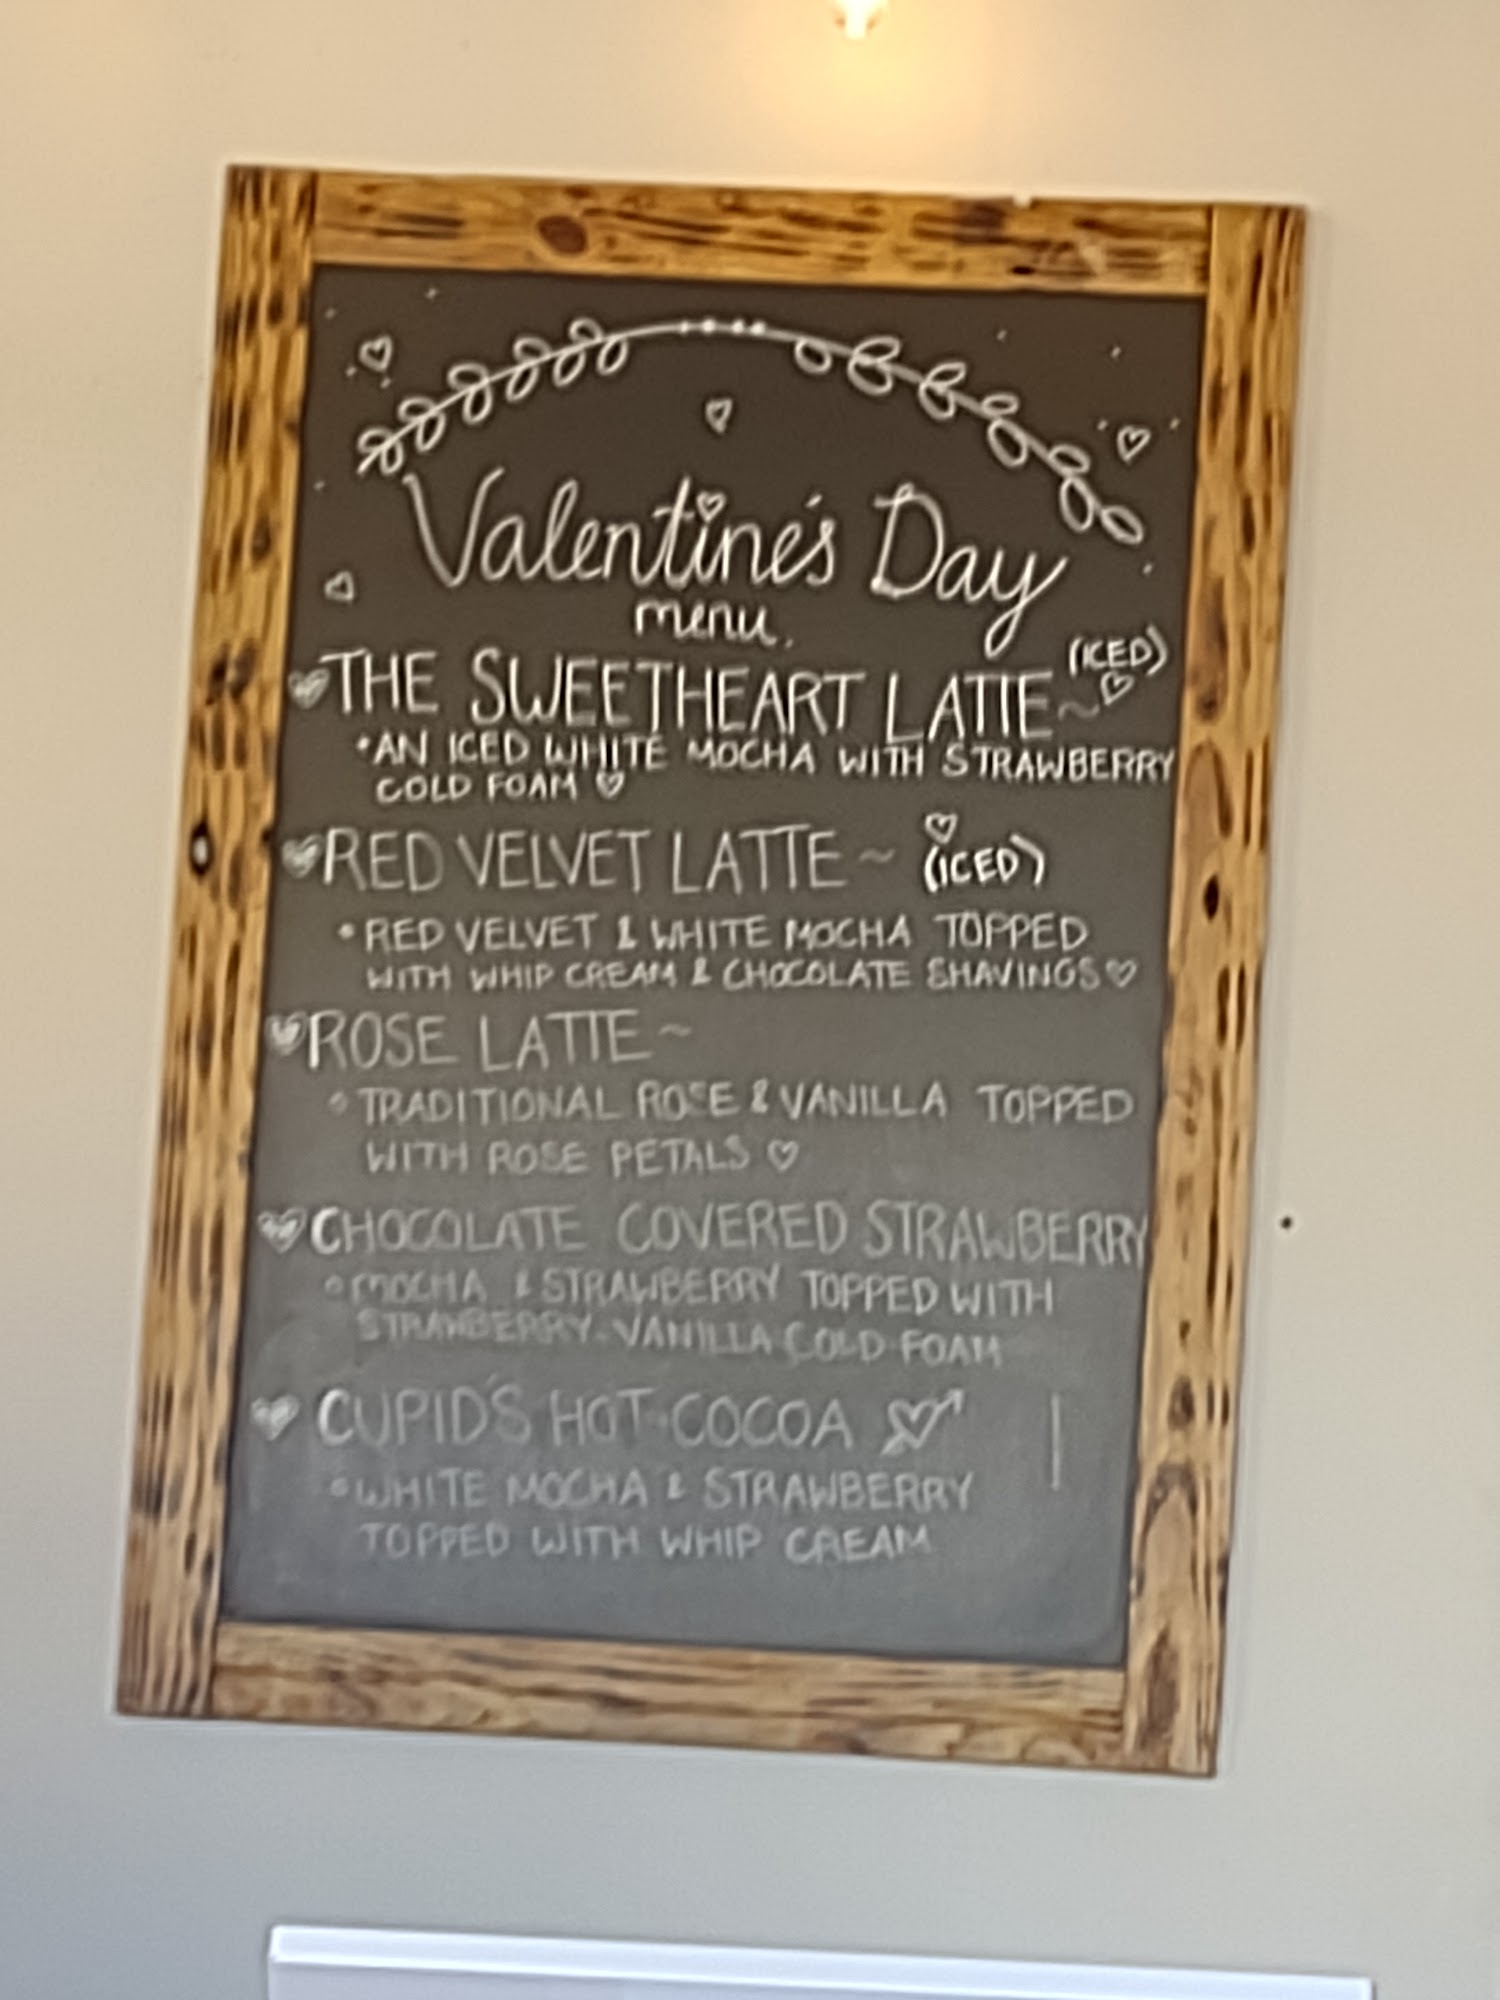 Valentine's Day
menu.
THE SWEETHEART LATTE ~ (ICED)
• AN ICED WHITE MOCHA WITH STRAWBERRY
COLD FOAM ♡
RED VELVET LATTE ~ (ICED)
• RED VELVET & WHITE MOCHA TOPPED
WITH WHIP CREAM & CHOCOLATE SHAVINGS ♡
ROSE LATTE ~
• TRADITIONAL ROSE & VANILLA TOPPED
WITH ROSE PETALS ♡
CHOCOLATE COVERED STRAWBERRY
• MOCHA & STRAWBERRY TOPPED WITH
STRAWBERRY-VANILLA COLD FOAM
CUPID'S HOT COCOA
• WHITE MOCHA & STRAWBERRY
TOPPED WITH WHIP CREAM